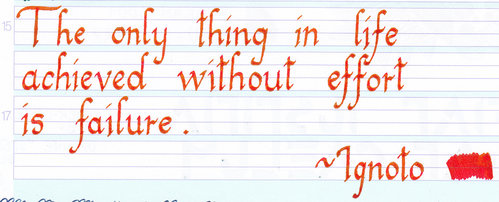 15
The only thing in life
achieved without effort
17
is failure.
~Ignoto